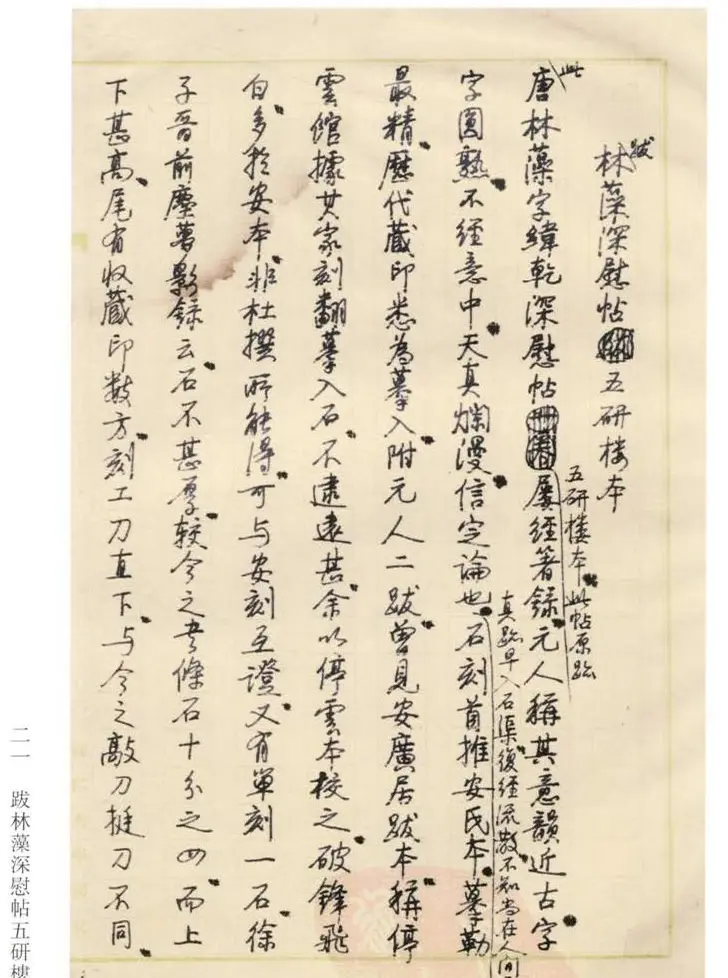 跋林藻深慰帖五研楼本
此唐林藻字緯乾深慰帖五研楼本此帖原跡屡經著録元人稱其意韻近古字
字圓熟不經意中天真爛漫信定論也真跡早入石渠復經流散不知尚在人间石刻首推安氏本摹勒
最精歷代蔵印悉為摹入附元人二跋曾見安廣居跋本稱停
雲館據其家刻翻摹入石不逮遠甚余以停雲本校之破鋒飛
白多於安本非杜撰所能得可与安刻互證又有單刻一石徐
子晋前塵夢影録云石不甚厚較今之書條石十分之四而上
下甚高尾有收蔵印数方刻工刀直下与今之敲刀挺刀不同
二一 跋林藻深慰帖五研樓